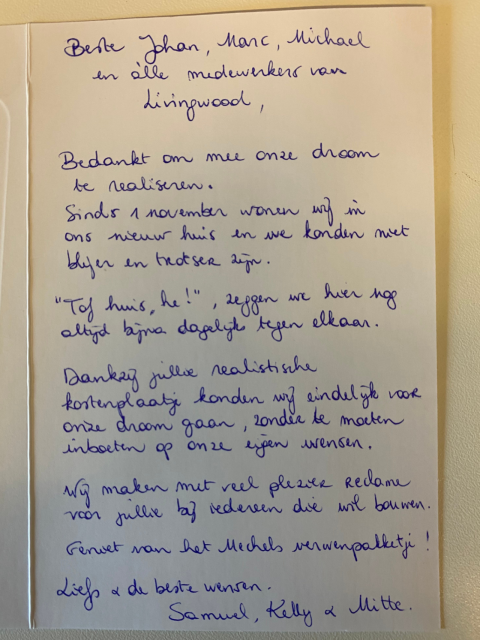 Beste Johan, Marc, Michael
en àlle medewerkers van
Livingwood,
Bedankt om mee onze droom
te realiseren.
Sinds 1 november wonen wij in
ons nieuw huis en we konden niet
blijer en trotser zijn.
"Tof huis, he!", zeggen we hier nog
altijd bijna dagelijks tegen elkaar.
Dankzij jullie realistische
kostenplaatje konden wij eindelijk voor
onze droom gaan, zonder te moeten
inboeten op onze eigen wensen.
Wij maken met veel plezier reclame
voor jullie bij iedereen die wil bouwen.
Geniet van het Mechels verwenpakketje!
Liefs & de beste wensen.
Samuel, Kelly & Mitte.